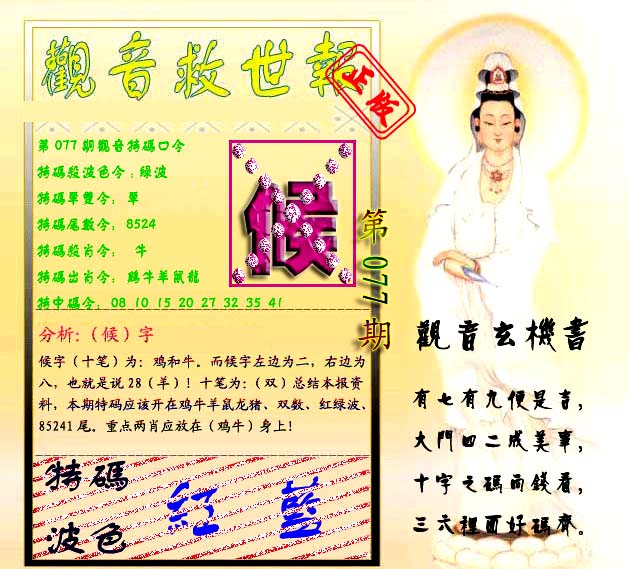 觀音救世報
正版
第077期觀音特碼口令
特碼殺波色令:綠波
特碼單雙令: 單
特碼尾數令: 8524
特碼殺肖令: 牛
特碼出肖令: 鷄牛羊鼠龍
特中碼令: 08 10 15 20 27 32 35 41
候
第077期
分析:(候)字
候字(十笔)为:鸡和牛。而候字左边为二,右边为
八,也就是说28(羊)!十笔为:(双)总结本报资
料,本期特码应该开在鸡牛羊鼠龙猪、双数、红绿波、
85241尾。重点两肖应放在(鸡牛)身上!
特碼
波色
紅 藍
觀音玄機書
有七有九便是吉,
大門四二成美事,
十字之碼而錢看,
三六裡面好碼齊。